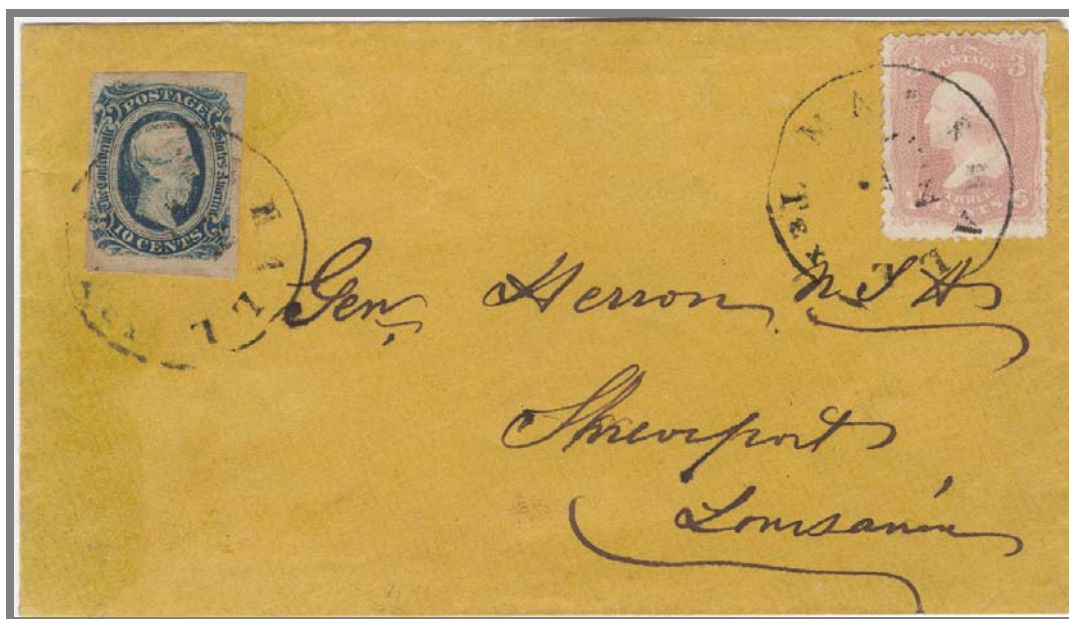 POSTAGE
The Confederate States America
10 CENTS
U.S.
POSTAGE
3 3
CENTS
Gen, Herron, U S A
Shreveport
Louisania